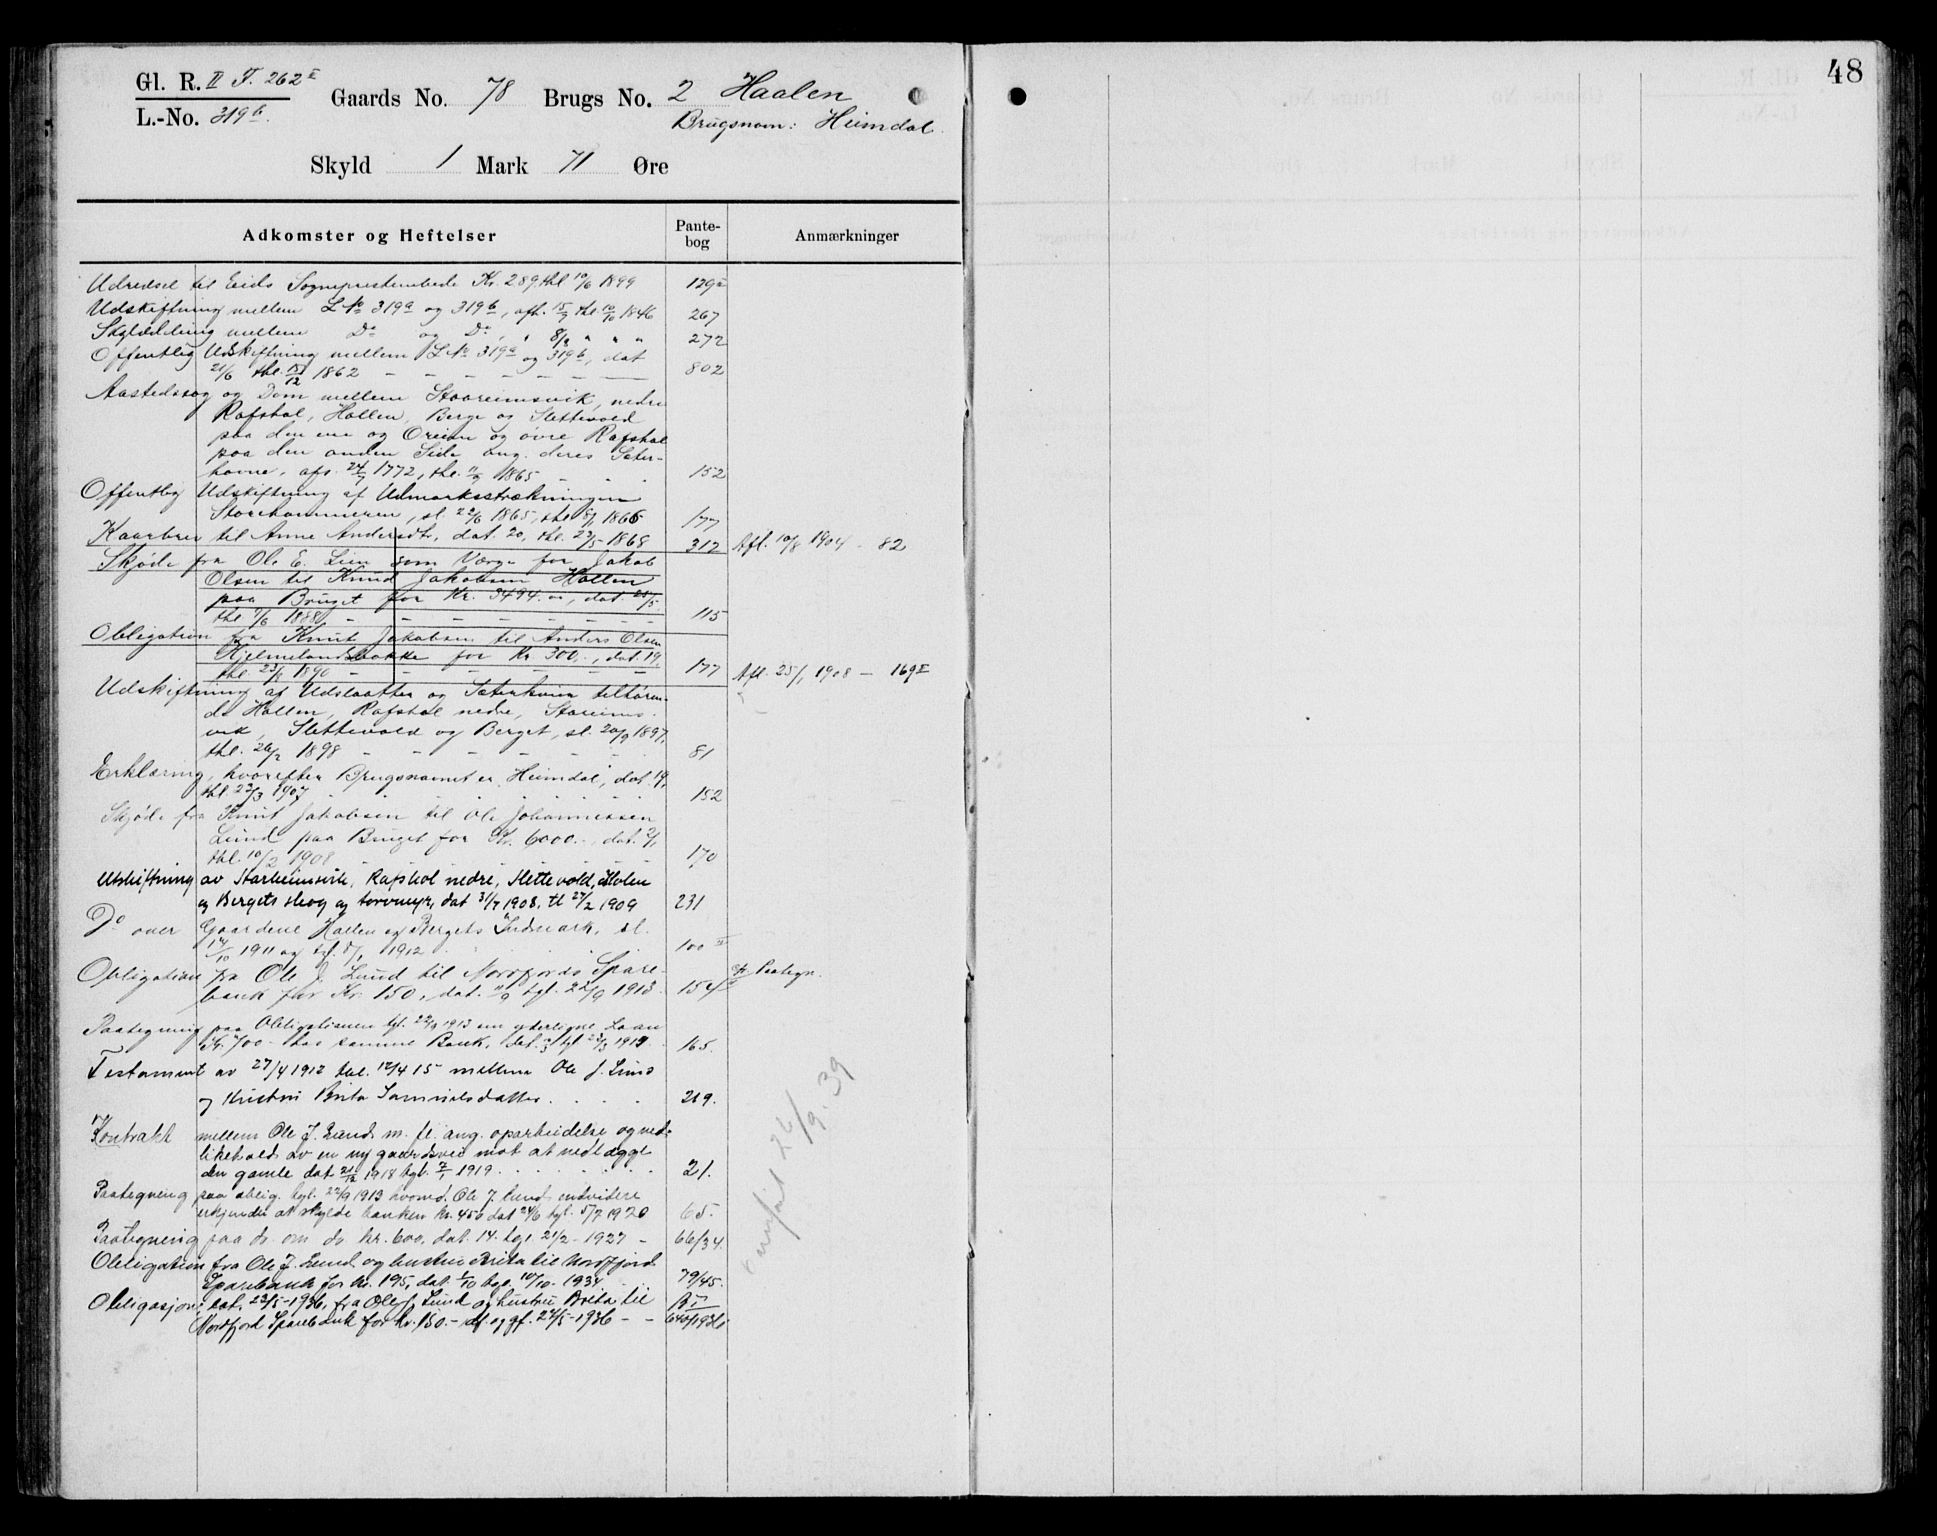 48
Gl. R. II F. 262 II
L.-No. 319 b.
Gaards No. 78 Brugs No. 2 Haalen
Brugsnavn: Heimdal.
Skyld 1 Mark 71 Øre
Adkomster og Heftelser Pantebog Anmærkninger
Udredsel til Eids Sogneprestembede Kr. 289 thl 10/6 1899 129 II
Udskiftning mellem L No 319a og 319b, afh. 15/7 thl. 10/10 1846 267
Skylddeling mellem Do og Do, " 8/9 " " " 272
Offentlig Udskiftning mellem L No 319a og 319b, dat
21/6 thl. 15/12 1862 - - - - - - 802
Aastedssag og Dom mellem Staareimsvik, nedre
Rafstal, Hallen, Berge og Slettevold
paa den ene og Oreim og övre Rafstal
paa den anden Side ang. deres Sæter-
havne, afs. 24/7 1772, thl. 11/9 1865 - . . 152
Offentlig Udskiftning af Udmarksstrækningen
Storehammeren, sl. 22/6 1865, thl 8/1 1866 177
Kaarbrev til Anne Andersdtr, dat. 20, thl. 23/5 1868 312 Afl. 10/8 1904 - 82
Skjöde fra Ole E. Lien som Værge for Jakob
Olsen til Knud Jakobsen Hallen
paa Bruget for Kr. 3494.00, dat. 25/5.
thl 7/6 1888 - - - - - - - 115
Obligation fra Knut Jakobsen til Anders Olsen
Hjelmelandsbakke for Kr 300,-, dat. 19,
thl. 23/1 1890 - - - - - - 177 Afl. 25/1 1908 - 169 II
Udskiftning af Udslaatter og Sæterhavn tilhören-
de Hallen, Rafstal nedre, Stareims-
vik, Slettevold og Berget, sl. 20/9 1897,
thl. 26/2 1898 - - - - - 81
Erklæring, hvorefter Brugsnavnet er Heimdal, dat 19,
thl. 23/3 1907 . . . . . . 152
Skjöde fra Knut Jakobsen til Ole Johannessen
Lund paa Bruget for Kr. 6000.-, dat. 2/1
thl. 10/2 1908 - - - 170
Utskiftning av Starheimsvik, Rafstol nedre, Slettevold, Holen
og Bergets skog og torvmyr, dat 31/7 1908, tl 27/2 1909 231
Do over Gaardene Hallen og Bergets Indmark, sl.
14/10 1911 og tgl. 8/1 1912 . . . 100 II
Obligation fra Ole J. Lund til Nordfjords Spare-
bank for Kr. 150, dat. 11/9 tgl. 22/9 1913. 154 Paategn.
Paategning paa Obligationen tgl. 22/9 1913 om yderligere Laan
Kr. 700 - hos samme Bank, dat. tgl 23/3 1915 165.
Testament av 27/4 1912 thl. 12/4 15 mellem Ole J. Lund
og Hustru Brita Samuelsdatter. . . . 219.
Kontrakt mellem Ole J. Lund m. fl. ang. oparbeidelse og ved-
likehold av en ny gaardsvei mot at nedlægge
den gamle dat 21/12 1918 tgl. 7/1 1919 . . . . . . 21.
Paategning paa oblig. tgl. 22/9 1913 hvorved Ole J. Lund endvidere
erkjender at skylde banken kr. 450 dat 24/6 tgl. 5/7 1920 65.
Paategning paa do om do kr. 600, dat. 14. tgl 21/2 - 1927 - 66/34.
Obligation fra Ole J. Lund og hustru Brita til Nordfjord
Sparebank for kr. 195, dat. 1/10 tgl. 10/10 - 1934. . . . 79/45.
Obligasjon, dat. 23/5-1936, fra Ole J. Lund og hustru Brita til B I
Nordfjord Sparebank for kr. 150.- df. og gf. 27/5-1936 - - 640/1936
26/9. 39